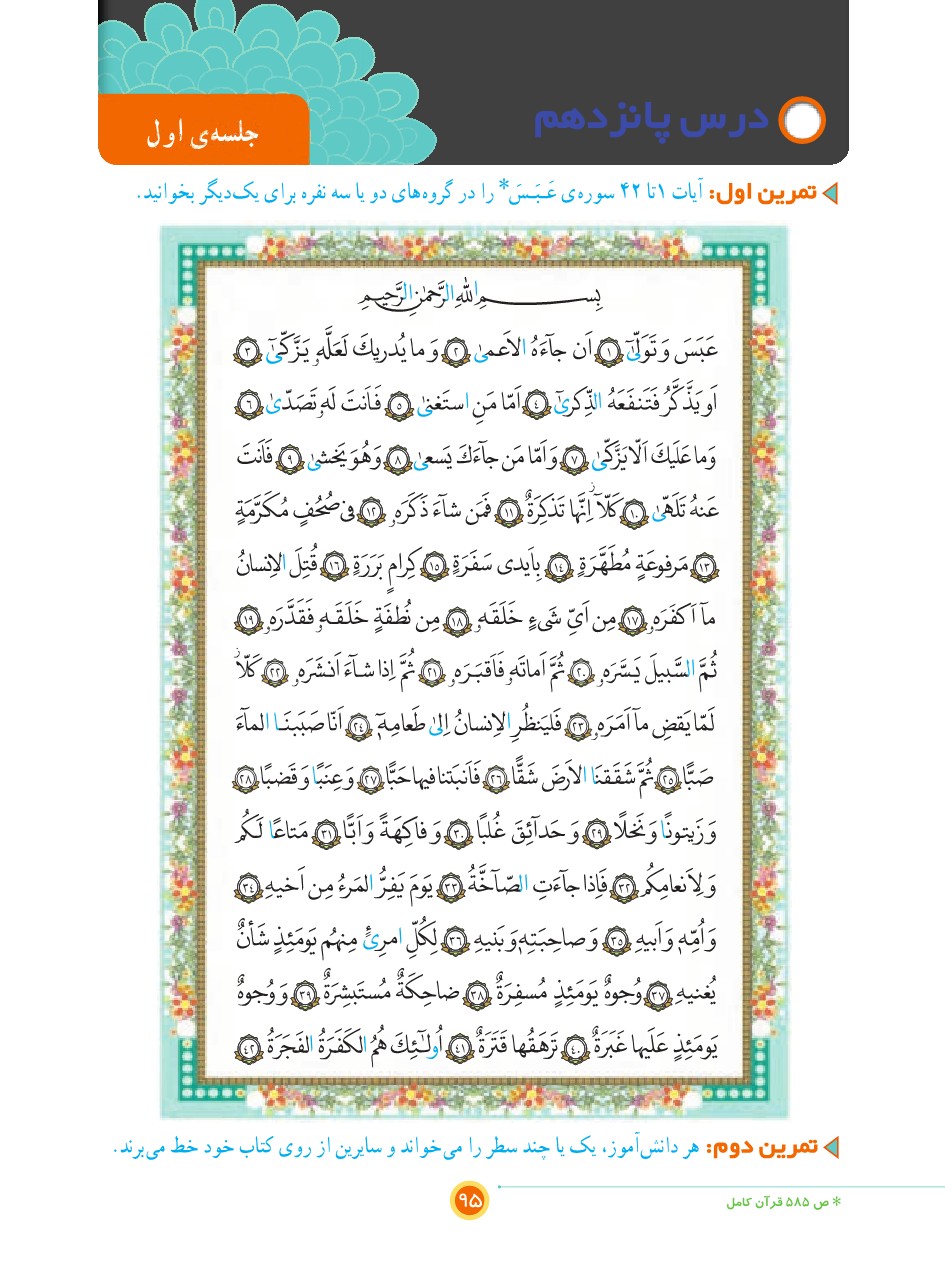 درس پانزدهم
جلسه‌ی اول
تمرین اول: آیات ۱ تا ۴۲ سوره‌ی عَبَسَ* را در گروه‌های دو یا سه نفره برای یک‌دیگر بخوانید.
بِسمِ اللهِ الرَّحمٰنِ الرَّحیمِ
عَبَسَ وَ تَوَلّىٰٓ ﴿۱﴾ اَن جآءَهُ الاَعمىٰ ﴿۲﴾ وَ ما يُدريكَ لَعَلَّهٗ يَزَّكّىٰٓ ﴿۳﴾
اَو يَذَّكَّرُ فَتَنفَعَهُ الذِّكرىٰٓ ﴿۴﴾ اَمّا مَنِ استَغنىٰ ﴿۵﴾ فَاَنتَ لَهٗ تَصَدّىٰ ﴿۶﴾
وَ ما عَلَيكَ اَلّا يَزَّكّىٰ ﴿۷﴾ وَ اَمّا مَن جآءَكَ يَسعىٰ ﴿۸﴾ وَ هُوَ يَخشىٰ ﴿۹﴾ فَاَنتَ
عَنهُ تَلَهّىٰ ﴿۱۰﴾ كَلّآ اِنَّها تَذكِرَةٌ ﴿۱۱﴾ فَمَن شآءَ ذَكَرَهٗ ﴿۱۲﴾ فى صُحُفٍ مُكَرَّمَةٍ
﴿۱۳﴾ مَرفوعَةٍ مُطَهَّرَةٍ ﴿۱۴﴾ بِاَيدى سَفَرَةٍ ﴿۱۵﴾ كِرامٍ بَرَرَةٍ ﴿۱۶﴾ قُتِلَ الاِنسانُ
مآ اَكفَرَهٗ ﴿۱۷﴾ مِن اَىِّ شَىءٍ خَلَقَهٗ ﴿۱۸﴾ مِن نُطفَةٍ خَلَقَهٗ فَقَدَّرَهٗ ﴿۱۹﴾
ثُمَّ السَّبيلَ يَسَّرَهٗ ﴿۲۰﴾ ثُمَّ اَماتَهٗ فَاَقبَرَهٗ ﴿۲۱﴾ ثُمَّ اِذا شآءَ اَنشَرَهٗ ﴿۲۲﴾ كَلّا
لَمّا يَقضِ مآ اَمَرَهٗ ﴿۲۳﴾ فَليَنظُرِ الاِنسانُ اِلىٰ طَعامِهٖٓ ﴿۲۴﴾ اَنّا صَبَبنَا المآءَ
صَبًّا ﴿۲۵﴾ ثُمَّ شَقَقنَا الاَرضَ شَقًّا ﴿۲۶﴾ فَاَنبَتنا فيها حَبًّا ﴿۲۷﴾ وَ عِنَبًا وَ قَضبًا ﴿۲۸﴾
وَ زَيتونًا وَ نَخلًا ﴿۲۹﴾ وَ حَدآئِقَ غُلبًا ﴿۳۰﴾ وَ فاكِهَةً وَ اَبًّا ﴿۳۱﴾ مَتاعًا لَكُم
وَ لِاَنعامِكُم ﴿۳۲﴾ فَاِذا جآءَتِ الصّآخَّةُ ﴿۳۳﴾ يَومَ يَفِرُّ المَرءُ مِن اَخيهِ ﴿۳۴﴾
وَ اُمِّهٖ وَ اَبيهِ ﴿۳۵﴾ وَ صاحِبَتِهٖ وَ بَنيهِ ﴿۳۶﴾ لِكُلِّ امرِئٍ مِنهُم يَومَئِذٍ شَأنٌ
يُغنيهِ ﴿۳۷﴾ وُجوهٌ يَومَئِذٍ مُسفِرَةٌ ﴿۳۸﴾ ضاحِكَةٌ مُستَبشِرَةٌ ﴿۳۹﴾ وَ وُجوهٌ
يَومَئِذٍ عَلَيها غَبَرَةٌ ﴿۴۰﴾ تَرهَقُها قَتَرَةٌ ﴿۴۱﴾ اُولٰٓئِكَ هُمُ الكَفَرَةُ الفَجَرَةُ ﴿۴۲﴾
تمرین دوم: هر دانش‌آموز، یک یا چند سطر را می‌خواند و سایرین از روی کتاب خود خط می‌برند.
* ص ۵۸۵ قرآن کامل
۹۵